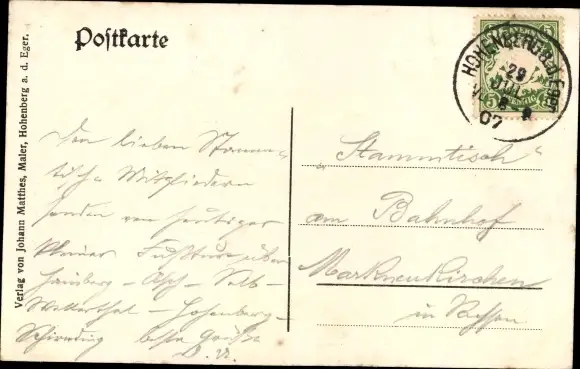 Postkarte
Verlag von Johann Matthes, Maler, Hohenberg a. d. Eger.
HOHENBERG a.d. Eger
29
JUL
07
5
Den lieben Stamm-
tisch Mitgliedern
senden von heutiger
Fußtour über
Hainberg – Asch – Selb –
Wellerthal – Hohenberg –
Schirnding beste Grüße
„Stammtisch“
am Bahnhof
Markneukirchen
in Sachsen